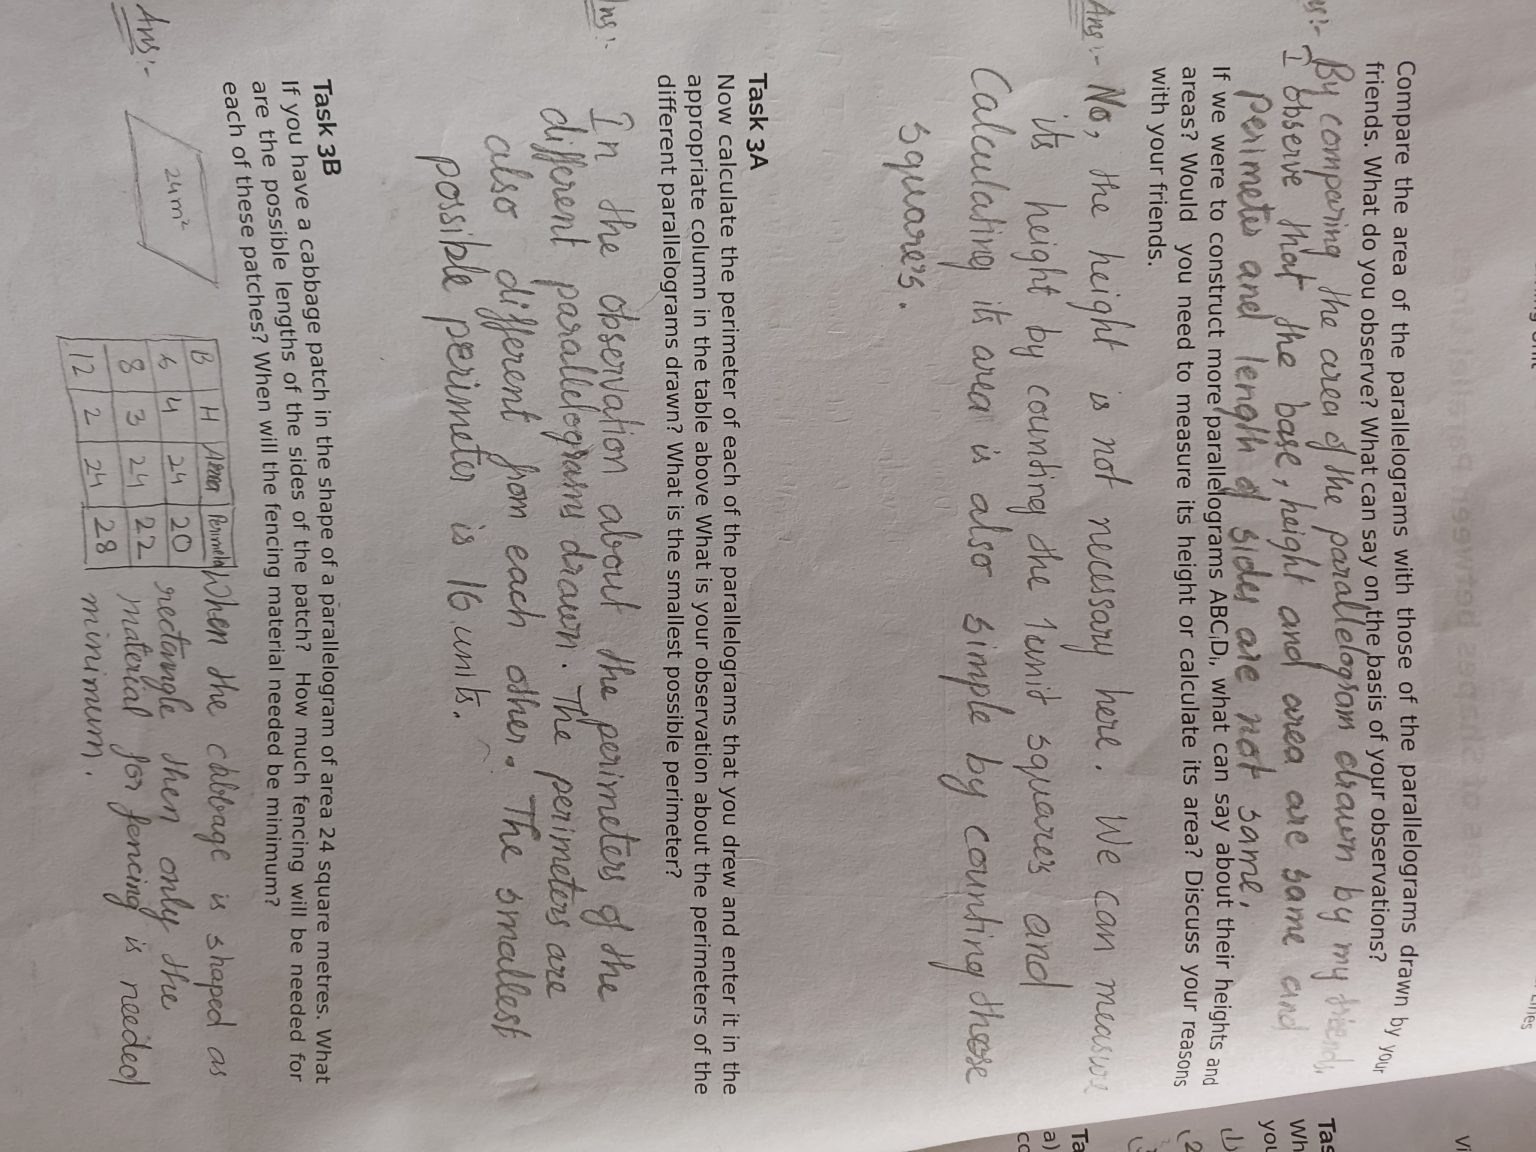 Compare the area of the parallelograms with those of the parallelograms drawn by your
friends. What do you observe? What can say on the basis of your observations?
By comparing the area of the parallelogram drawn by my friends,
I observe that the base, height and area are same and
perimeter and length of sides are not same.
If we were to construct more parallelograms ABCᵢDᵢ, what can say about their heights and
areas? Would you need to measure its height or calculate its area? Discuss your reasons
with your friends.
Ans:- No, the height is not necessary here. We can measure
its height by counting the 1 unit square's and
Calculating its area is also simple by counting those
square's.
Task 3A
Now calculate the perimeter of each of the parallelograms that you drew and enter it in the
appropriate column in the table above What is your observation about the perimeters of the
different parallelograms drawn? What is the smallest possible perimeter?
Ans:- In the observation about the perimeters of the
different parallelograms drawn. The perimeters are
also different from each other. The smallest
possible perimeter is 16 units.
Task 3B
If you have a cabbage patch in the shape of a parallelogram of area 24 square metres. What
are the possible lengths of the sides of the patch? How much fencing will be needed for
each of these patches? When will the fencing material needed be minimum?
Ans:-
24m²
B H Area Perimeter
6 4 24 20
8 3 24 22
12 2 24 28
When the cabbage is shaped as
rectangle then only the
material for fencing is needed
minimum.